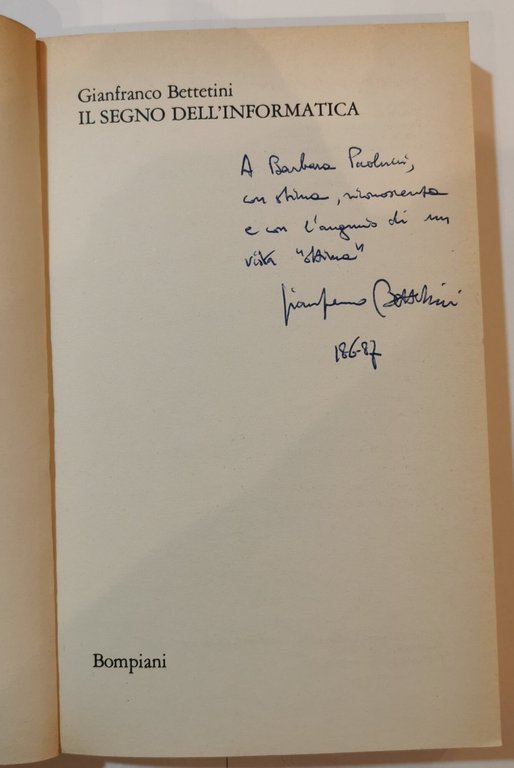 Gianfranco Bettetini
IL SEGNO DELL'INFORMATICA
A Barbara Paolucci,
con stima, riconoscenza
e con l'augurio di un
vita "ottima"
Gianfranco Bettetini
186-87
Bompiani